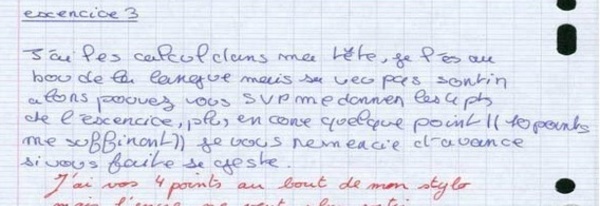 excencice 3
J'ai les calcul dans ma tête, je l'es au
bou de la langue mais sa veu pas sortir
alors pouvez vous SVP me donner les 4 pts
de l'exercice, plus encore quelque point (( 10 points
me suffiront)) je vous remercie d'avance
si vous faite se geste.
J'ai vos 4 points au bout de mon stylo
mais l'encre ne veut plus sortir